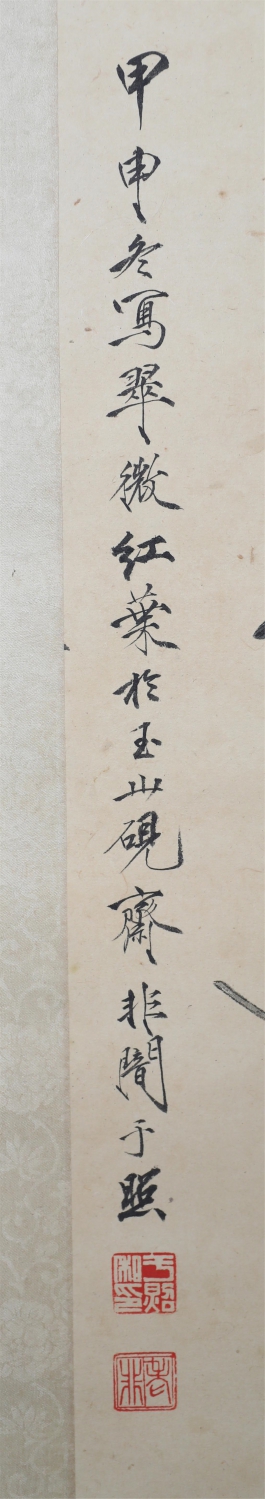 甲申冬寫翠微紅葉於玉山硯齋非闇于照